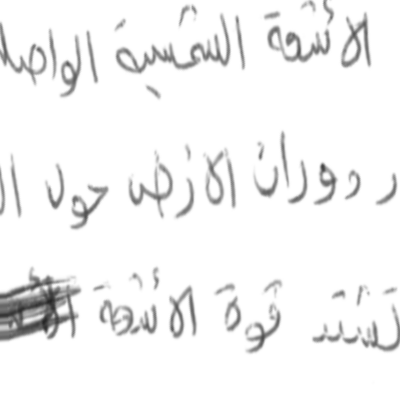 الأشعة الشمسية الواصلـ
ر دوران الارض حول ال
تشتد قوة الأشعة